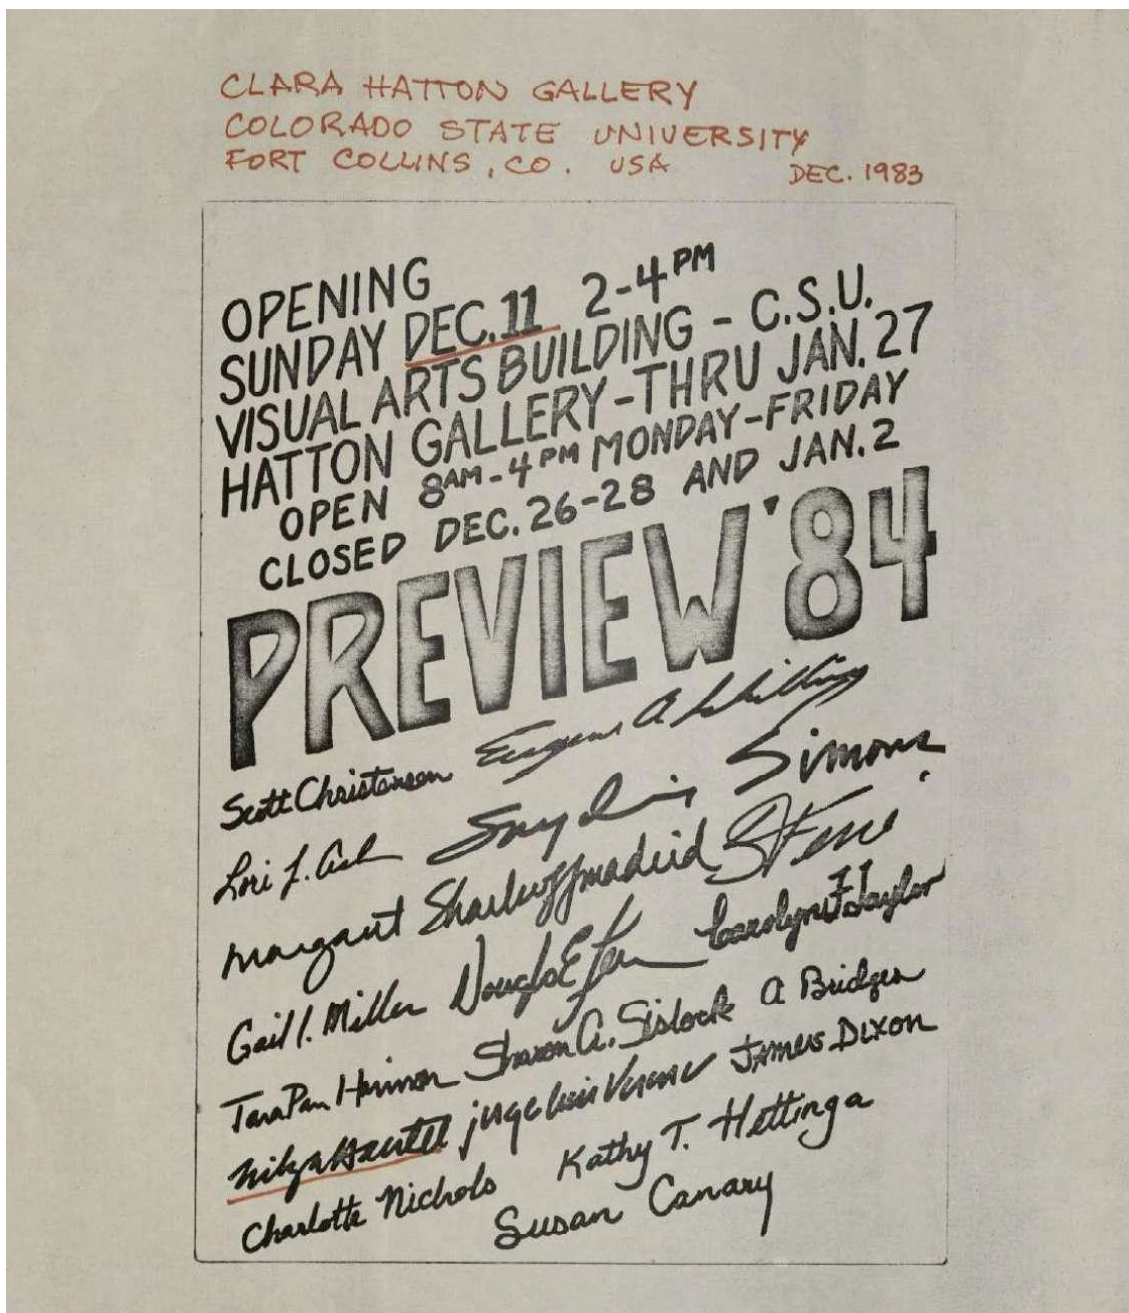 CLARA HATTON GALLERY
COLORADO STATE UNIVERSITY
FORT COLLINS, CO. USA
DEC. 1983
OPENING
SUNDAY DEC. 11 2-4 PM
VISUAL ARTS BUILDING - C.S.U.
HATTON GALLERY - THRU JAN. 27
OPEN 8AM-4PM MONDAY-FRIDAY
CLOSED DEC. 26-28 AND JAN. 2
PREVIEW '84
Scott Christensen Eugene A
Lori J. Simons
Margaret
Gail I. Miller Carolyn Taylor
Tara Pam Sharon A. Sislock A Bridgen
James Dixon
Charlotte Nichols Kathy T. Hettinga
Susan Canary